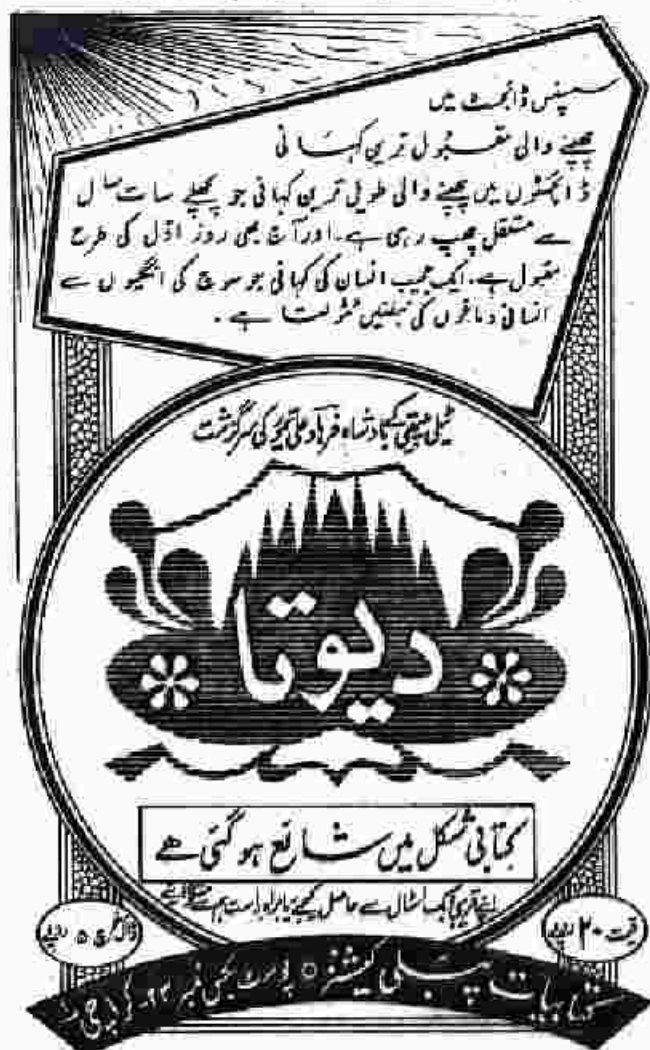 سسپنس ڈائجسٹ میں
چھپنے والی مقبول ترین کہانی
ڈائجسٹوں میں چھپنے والی طویل ترین کہانی جو پچھلے سات سال
سے مستقل چھپ رہی ہے۔ اور آج بھی روز اوّل کی طرح
مقبول ہے۔ ایک عجیب انسان کی کہانی جو سوچ کی انگلیوں سے
انسانی دماغوں کی نبضیں ٹٹولتا ہے۔
ٹیلی پیتھی کے بادشاہ فرہاد علی تیمور کی سرگزشت
دیوتا
کتابی شکل میں شائع ہو گئی ھے
اپنے قریبی بک اسٹال سے حاصل کیجئے یا براہ راست ہم سے منگوائیے
قیمت ۲۰ روپے
ڈاک خرچ ۵ روپے
کتابیات پبلی کیشنز ○ پوسٹ بکس نمبر ۲۳ کراچی